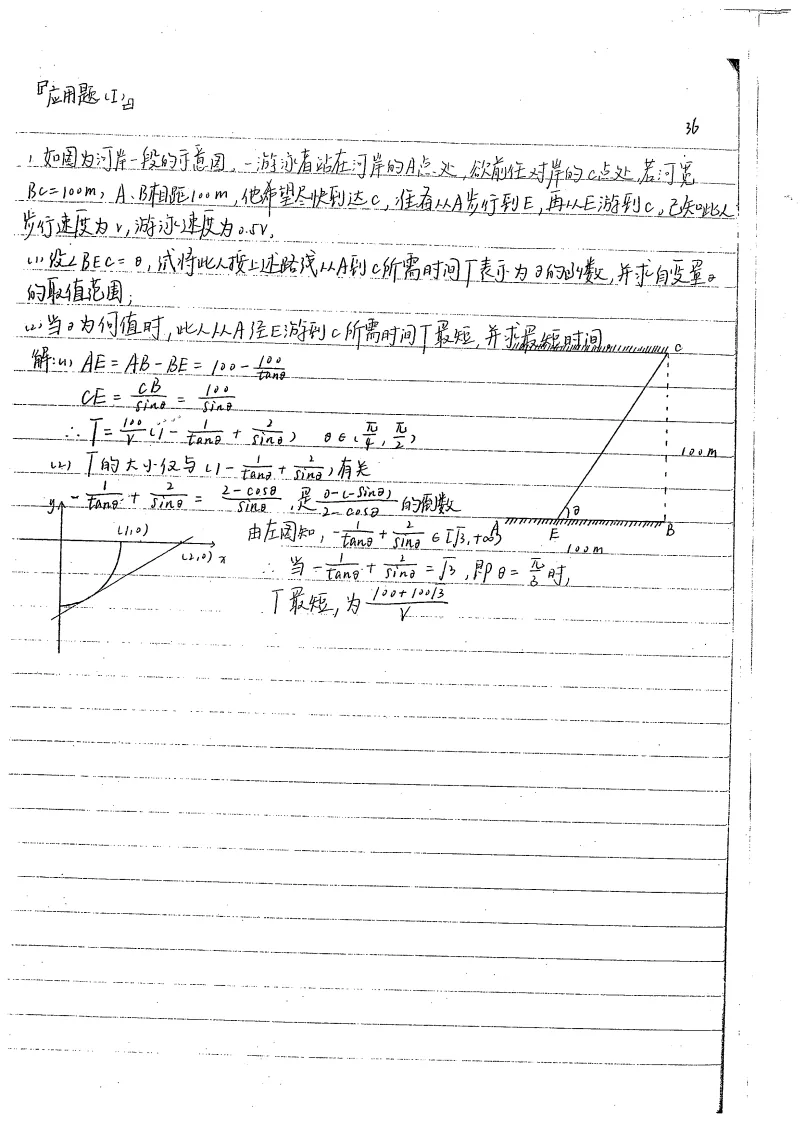 『应用题(I)』
36
1.如图为河岸一段的示意图,一游泳者站在河岸的A点处,欲前往对岸的C点处,若河宽
BC=100m,A、B相距100m,他希望尽快到达C,准备从A步行到E,再从E游到C,已知此人
步行速度为v,游泳速度为0.5v.
(1)设∠BEC=θ,试将此人按上述路线从A到C所需时间T表示为θ的函数,并求自变量θ
的取值范围;
(2)当θ为何值时,此人从A经E游到C所需时间T最短,并求最短时间
解:(1) AE=AB-BE=100-100/tanθ
CE=CB/sinθ=100/sinθ
∴T=100/v(1-1/tanθ+2/sinθ) θ∈(π/4,π/2)
(2) T的大小仅与(1-1/tanθ+2/sinθ)有关
-1/tanθ+2/sinθ=2-cosθ/sinθ,是0-(-sinθ)/2-cosθ的倒数
由左图知,-1/tanθ+2/sinθ∈[√3,+∞)
∴当-1/tanθ+2/sinθ=√3,即θ=π/3时,
T最短,为100+100√3/v
y
(1,0)
(2,0) x
C
100m
θ
A E B
100m